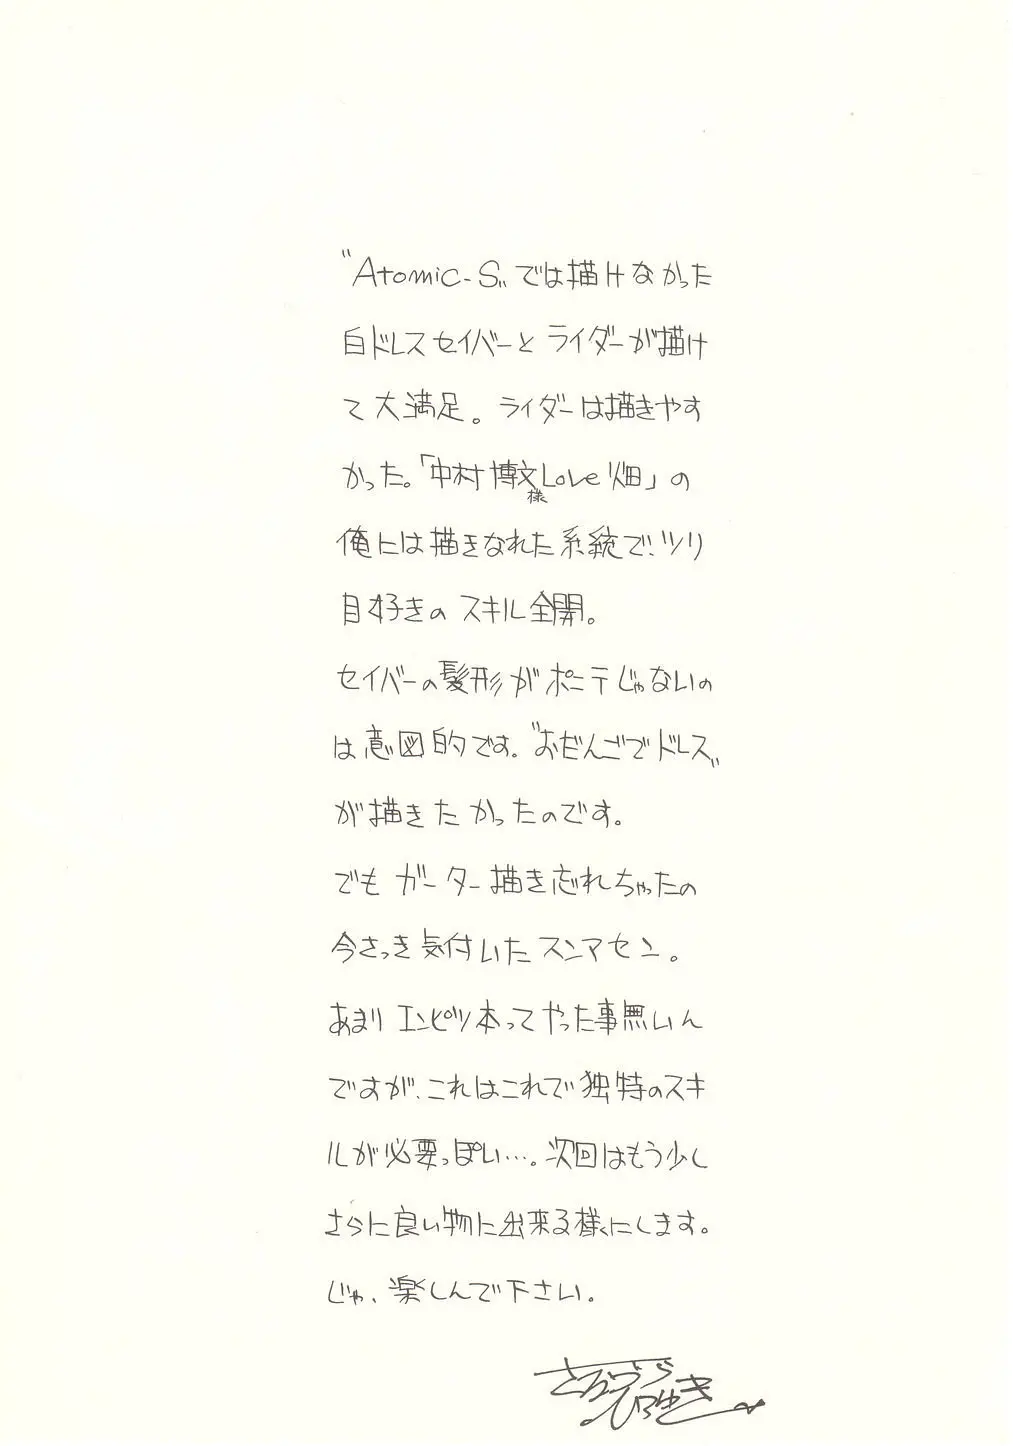 〝Atomic-S〟では描けなかった
白ドレスセイバーとライダーが描け
て大満足。ライダーは描きやす
かった。「中村博文様Love畑」の
俺には描きなれた系統で、ツリ
目好きのスキル全開。
セイバーの髪形がポニテじゃないの
は意図的です。〝おだんごでドレス〟
が描きたかったのです。
でもガーター描き忘れちゃったの
今さっき気付いたスンマセン。
あまりエンピツ本ってやった事無いん
ですが、これはこれで独特のスキ
ルが必要っぽい…。次回はもう少し
さらに良い物に出来る様にします。
じゃ、楽しんで下さい。